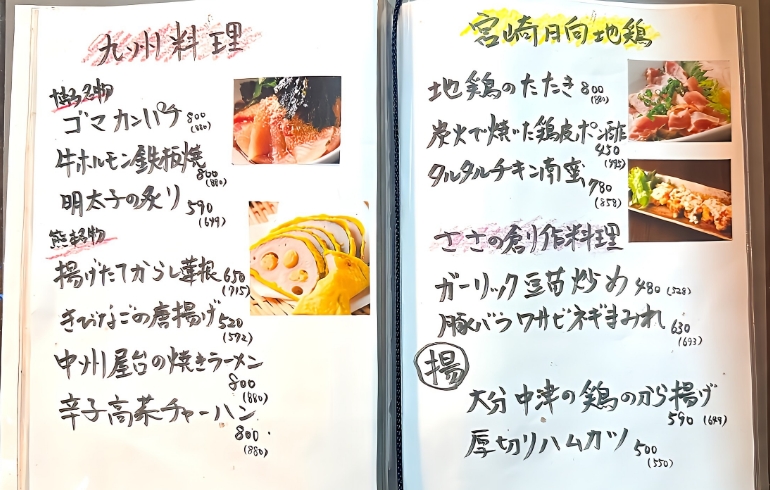 九州料理
博多名物
ゴマカンパチ 800
(880)
牛ホルモン鉄板焼
800
(880)
明太子の炙り 590
(649)
熊本名物
揚げたてからし蓮根 650
(715)
きびなごの唐揚げ 520
(572)
中州屋台の焼きラーメン
800
(880)
辛子高菜チャーハン
800
(880)
宮崎日向地鶏
地鶏のたたき 800
(880)
炭火で焼いた鶏皮ポン酢
450
(495)
タルタルチキン南蛮
780
(858)
ささの創作料理
ガーリック豆苗炒め 480 (528)
豚バラワサビネギまみれ 630
(693)
揚
大分中津の鶏のから揚げ
590 (649)
厚切りハムカツ 500
(550)